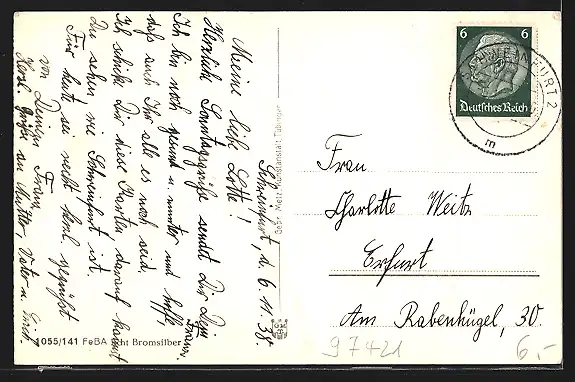 Schweinfurt, d. 6. 11. 38
Meine liebe Lotte!
Herzliche Sonntagsgrüße sendet Dir Dein Franz.
Ich bin noch gesund u. munter und hoffe,
daß auch Ihr alle es noch seid.
Ich schicke Dir diese Karten, darauf kannst
Du sehen, wie Schweinfurt ist.
Für heut sei recht herzl. gegrüßt
von Deinem Franz
Herzl. Grüße an Mutter, Vater u.
1055/141 FeBA Echt Bromsilber
Gebr. Metz, Kunstanstalt, Tübingen
6 6
Deutsches Reich
SCHWEINFURT 2
Frau
Charlotte Weitz
Erfurt
Am Rabenhügel, 30.
97421
6,-